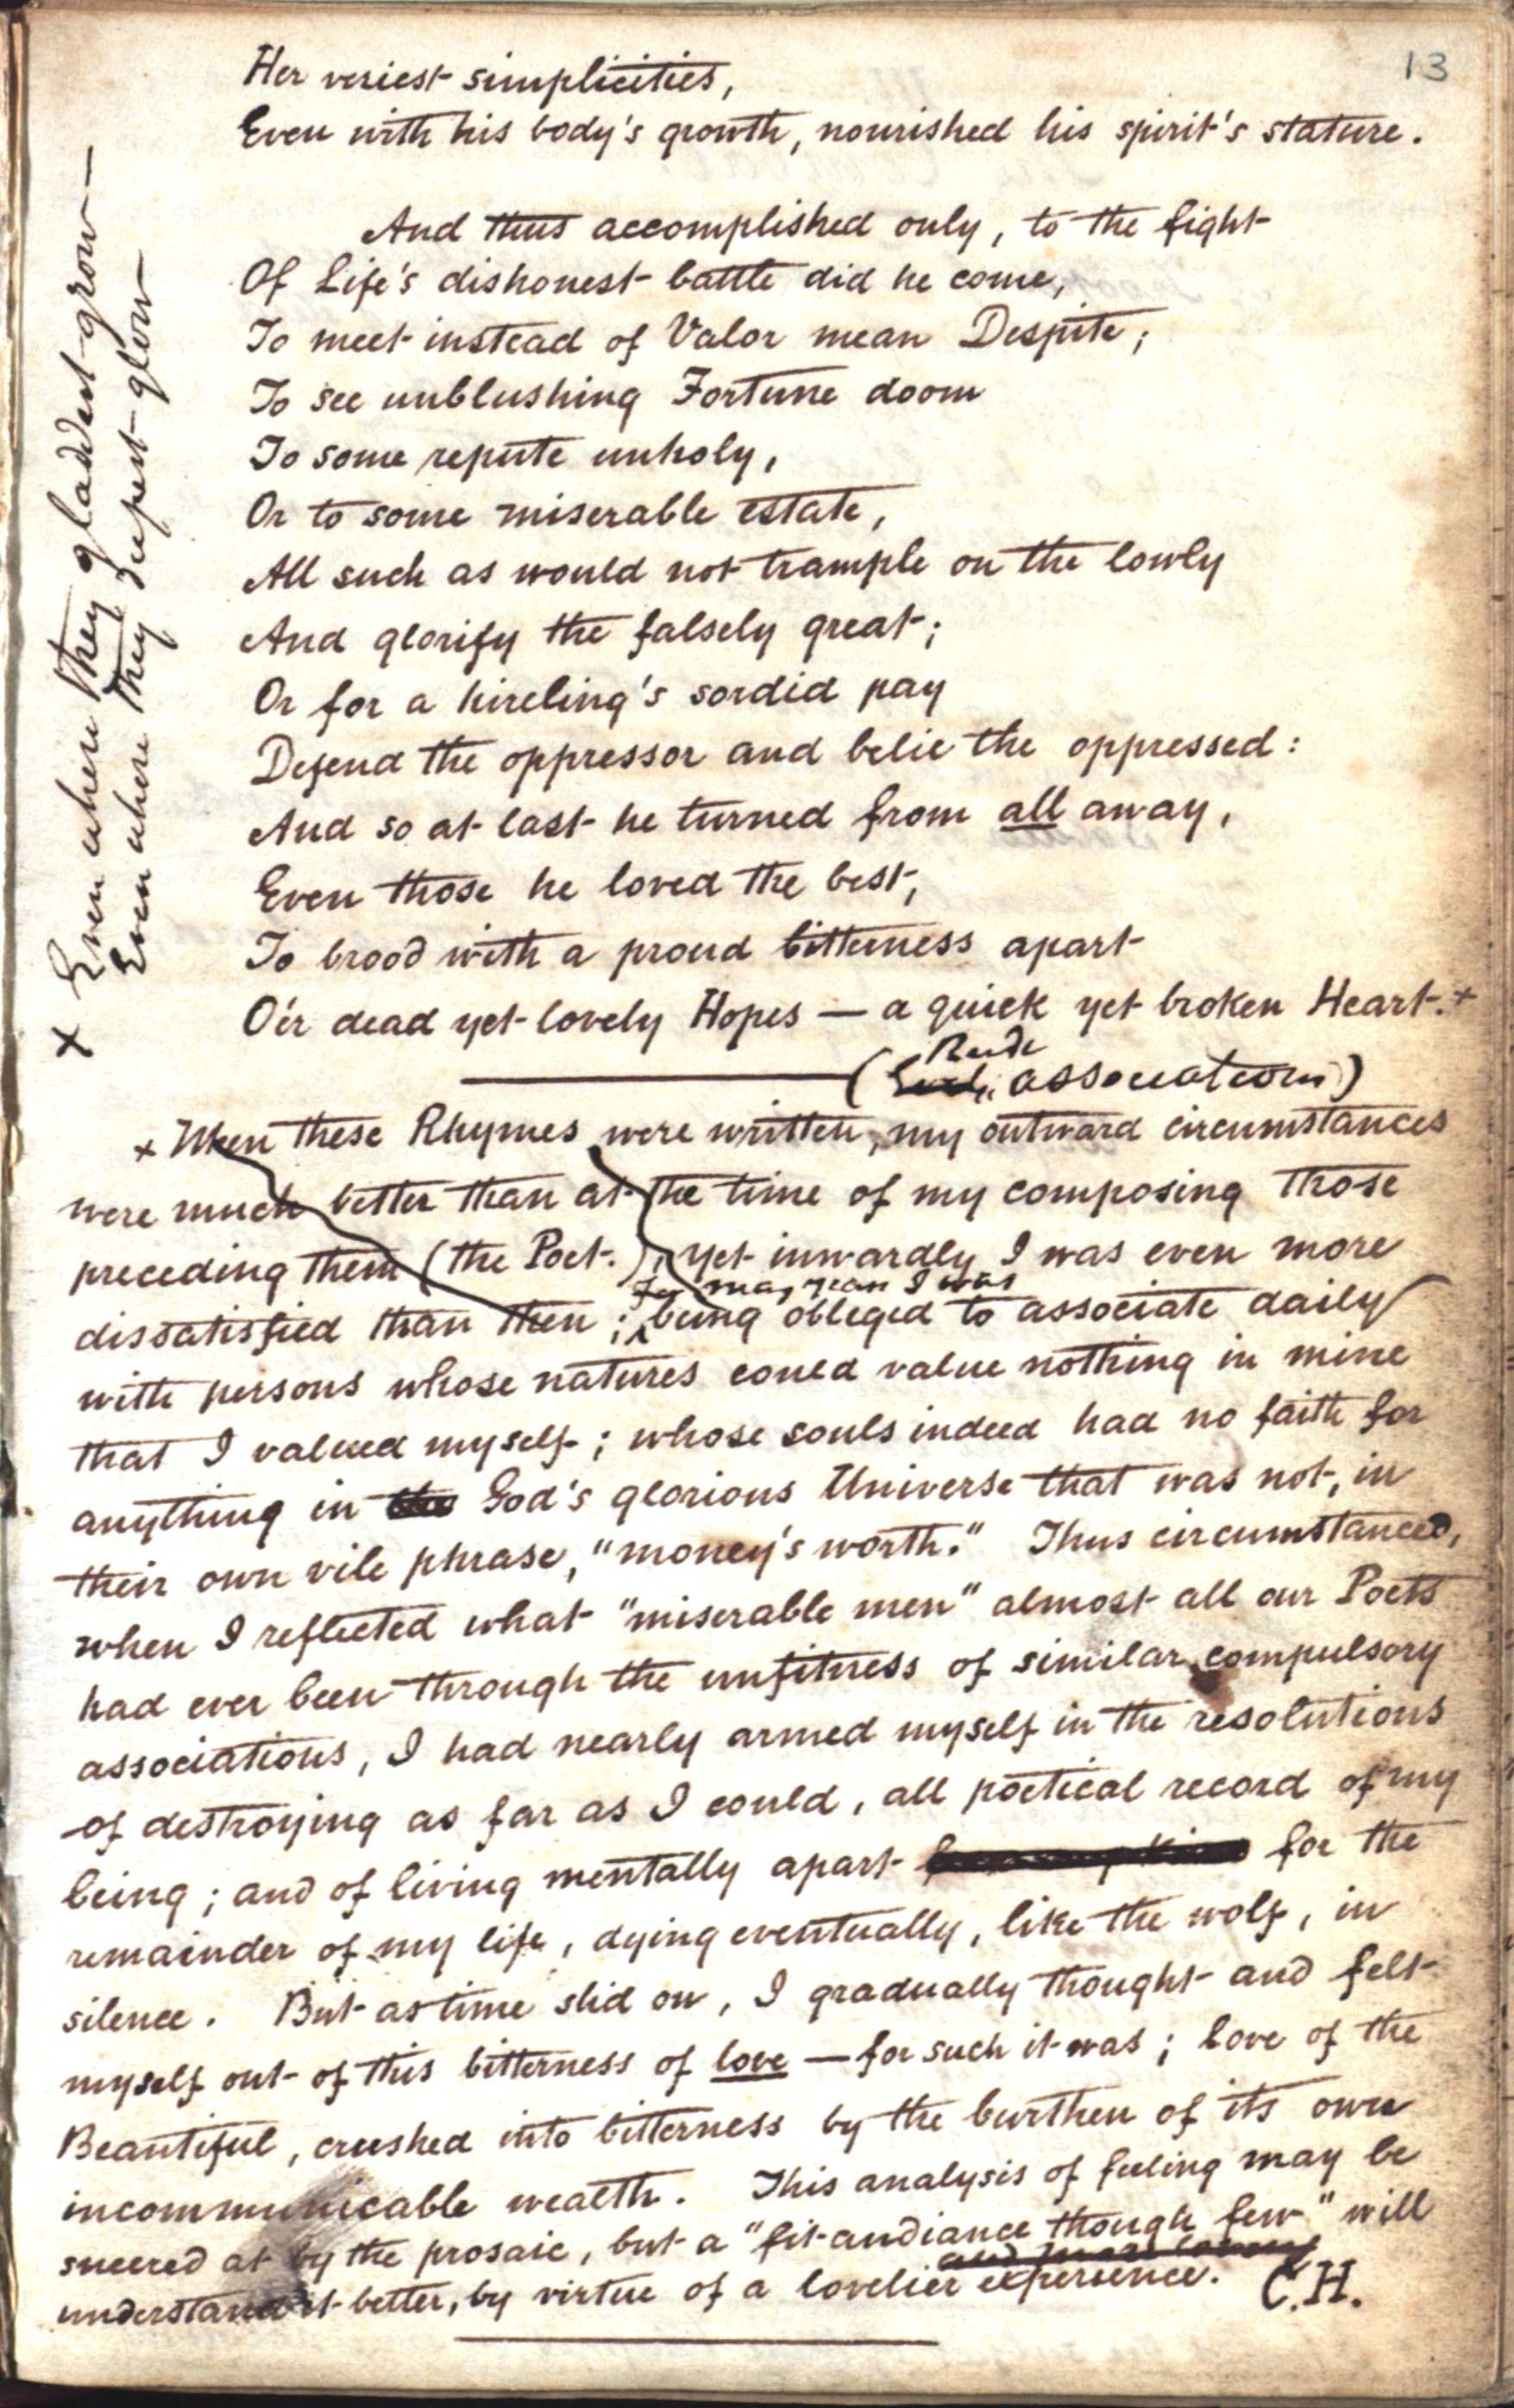 13
Her veriest simplicities,
Even with his body's growth, nourished his spirit's stature.
And thus accomplished only, to the fight
Of Life's dishonest battle did he come,
To meet instead of Valor mean Despite;
To see unblushing Fortune doom
To some repute unholy,
Or to some miserable estate,
All such as would not trample on the lowly
And glorify the falsely great;
Or for a hireling's sordid pay
Defend the oppressor and belie the oppressed:
And so at last he turned from all away,
Even those he loved the best,
To brood with a proud bitterness apart
O'er dead yet lovely Hopes — a quick yet broken Heart. +
+ Even where they gladdest grow —
Even where they deepest glow
Rude
( associations)
+ When these Rhymes were written, my outward circumstances
were much better than at the time of my composing those
preceding them (the Poet.), yet inwardly I was even more
For many years I was
dissatisfied than then; being obleged to associate daily
with persons whose natures could value nothing in mine
that I valued myself; whose souls indeed had no faith for
anything in the God's glorious Universe that was not, in
their own vile phrase, "money's worth." Thus circumstanced,
when I reflected what "miserable men" almost all our Poets
had ever been through the unfitness of similar compulsory
associations, I had nearly armed myself in the resolutions
of destroying as far as I could, all poetical record of my
being; and of living mentally apart for the
remainder of my life, dying eventually, like the wolf, in
silence. But as time slid on, I gradually thought and felt
myself out of this bitterness of love — for such it was; love of the
Beautiful, crushed into bitterness by the burthen of its own
incommunicable wealth. This analysis of feeling may be
sneered at by the prosaic, but a "fit audiance though few" will
understand it better, by virtue of a lovelier experience. C.H.